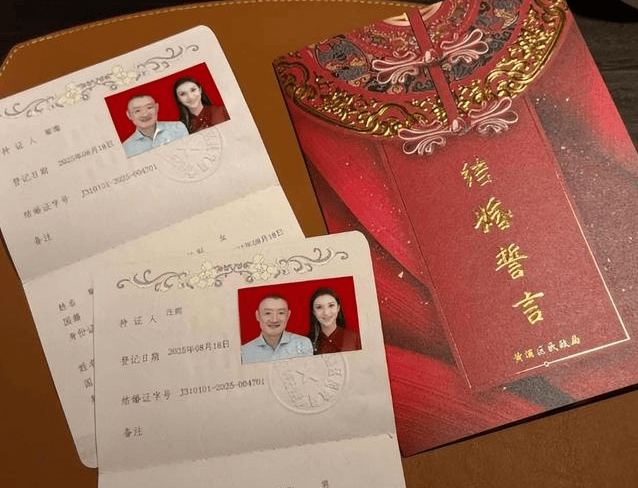 持证人
登记日期 2025年08月18日
结婚证字号 J310101-2025-004701
备注
女
2025年08月18日
姓名
国籍
身份证
姓名
国
持证人 汪雨
登记日期 2025年08月18日
结婚证字号 J310101-2025-004701
备注
男
结婚誓言
黄浦区民政局